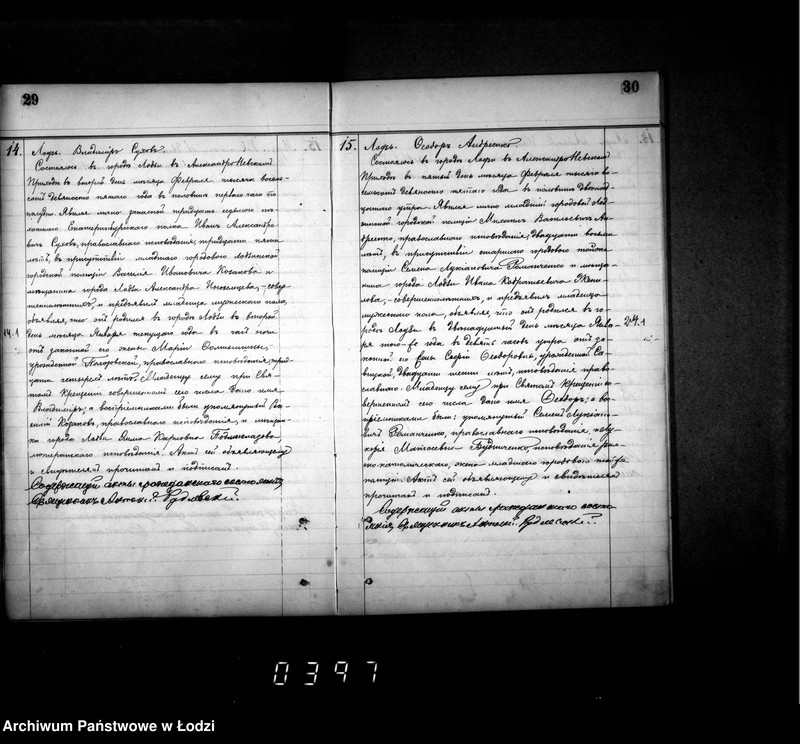 29
14. Лодзь. Владиміръ Суховъ.
Состоялось въ городѣ Лодзи въ Александро-Невскомъ
Приходѣ въ второй день мѣсяца Февраля тысяча восемь-
сотъ девяносто пятаго года въ половинѣ перваго часа по
полудни. Явился лично
Екатеринбургскаго полка Иванъ Александро-
вичъ Суховъ, православнаго исповѣданія, тридцати
лѣтъ, въ присутствіи младшаго городового Лодзинской
городской полиціи Василія Ивановича Козакова и
мѣщанина города Лодзи Александра совер-
шеннолѣтнихъ, и предъявилъ младенца мужескаго пола,
объявляя, что онъ родился въ городѣ Лодзи въ второй
день мѣсяца Января текущаго года въ часъ ночи
отъ законной его жены Маріи
урожденной православнаго исповѣданія, трид-
цати четырехъ лѣтъ. Младенцу сему при Свя-
томъ Крещеніи совершенномъ сего числа дано имя
Владиміръ; а воспріемниками были упомянутый Ва-
силій Козаковъ, православнаго исповѣданія, и мѣщан-
ка города Лодзи Карловна
лютеранскаго исповѣданія. Актъ сей объявляющему
и свидѣтелямъ прочитанъ и подписанъ.
Содержащій акты гражданскаго состоянія,
Священникъ Антоній Рудлевскій.
14.1
30
15. Лодзь. Ѳеодоръ
Состоялось въ городѣ Лодзи въ Александро-Невскомъ
Приходѣ въ пятый день мѣсяца Февраля тысяча во-
семьсотъ девяносто пятаго года въ половинѣ двѣнад-
цатаго утра. Явился лично младшій городовой Лод-
зинской городской полиціи Василіевичъ Ан-
православнаго исповѣданія, двадцати восьми
лѣтъ, въ присутствіи старшаго городового той-же
полиціи Семена Лукіановича Романченко и мѣща-
нина города Лодзи Ивана
совершеннолѣтнихъ, и предъявилъ младенца
мужескаго пола, объявляя, что онъ родился въ го-
родѣ Лодзи въ двѣнадцатый день мѣсяца Янва-
ря того-же года въ девять часовъ утра отъ за-
конной его жены Софіи Ѳеодоровны, урожденной Са-
вицкой, двадцати шести лѣтъ, исповѣданія право-
славнаго. Младенцу сему при Святомъ Крещеніи со-
вершенномъ сего числа дано имя Ѳеодоръ; а вос-
пріемниками были: упомянутый Семенъ Лукіано-
вичъ Романченко, православнаго исповѣданія, и
Матвѣевна исповѣданія рим-
ско-католическаго, жена младшаго городового той-же
полиціи. Актъ сей объявляющему и свидѣтелямъ
прочитанъ и подписанъ.
Содержащій акты гражданскаго состо-
янія, Священникъ Антоній Рудлевскій.
24.1
0397
Archiwum Państwowe w Łodzi